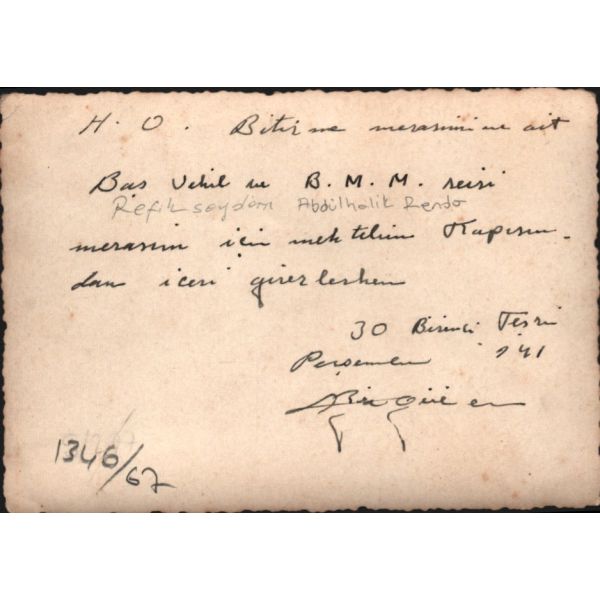 H. O. Bitirme merasimine ait
Baş Vekil ve B. M. M. reisi
Refik Saydam Abdülhalik Renda
merasim için mektebin Kapısın-
dan içeri girerlerken
30 Birinci Teşrin
Perşembe 941
1346/67